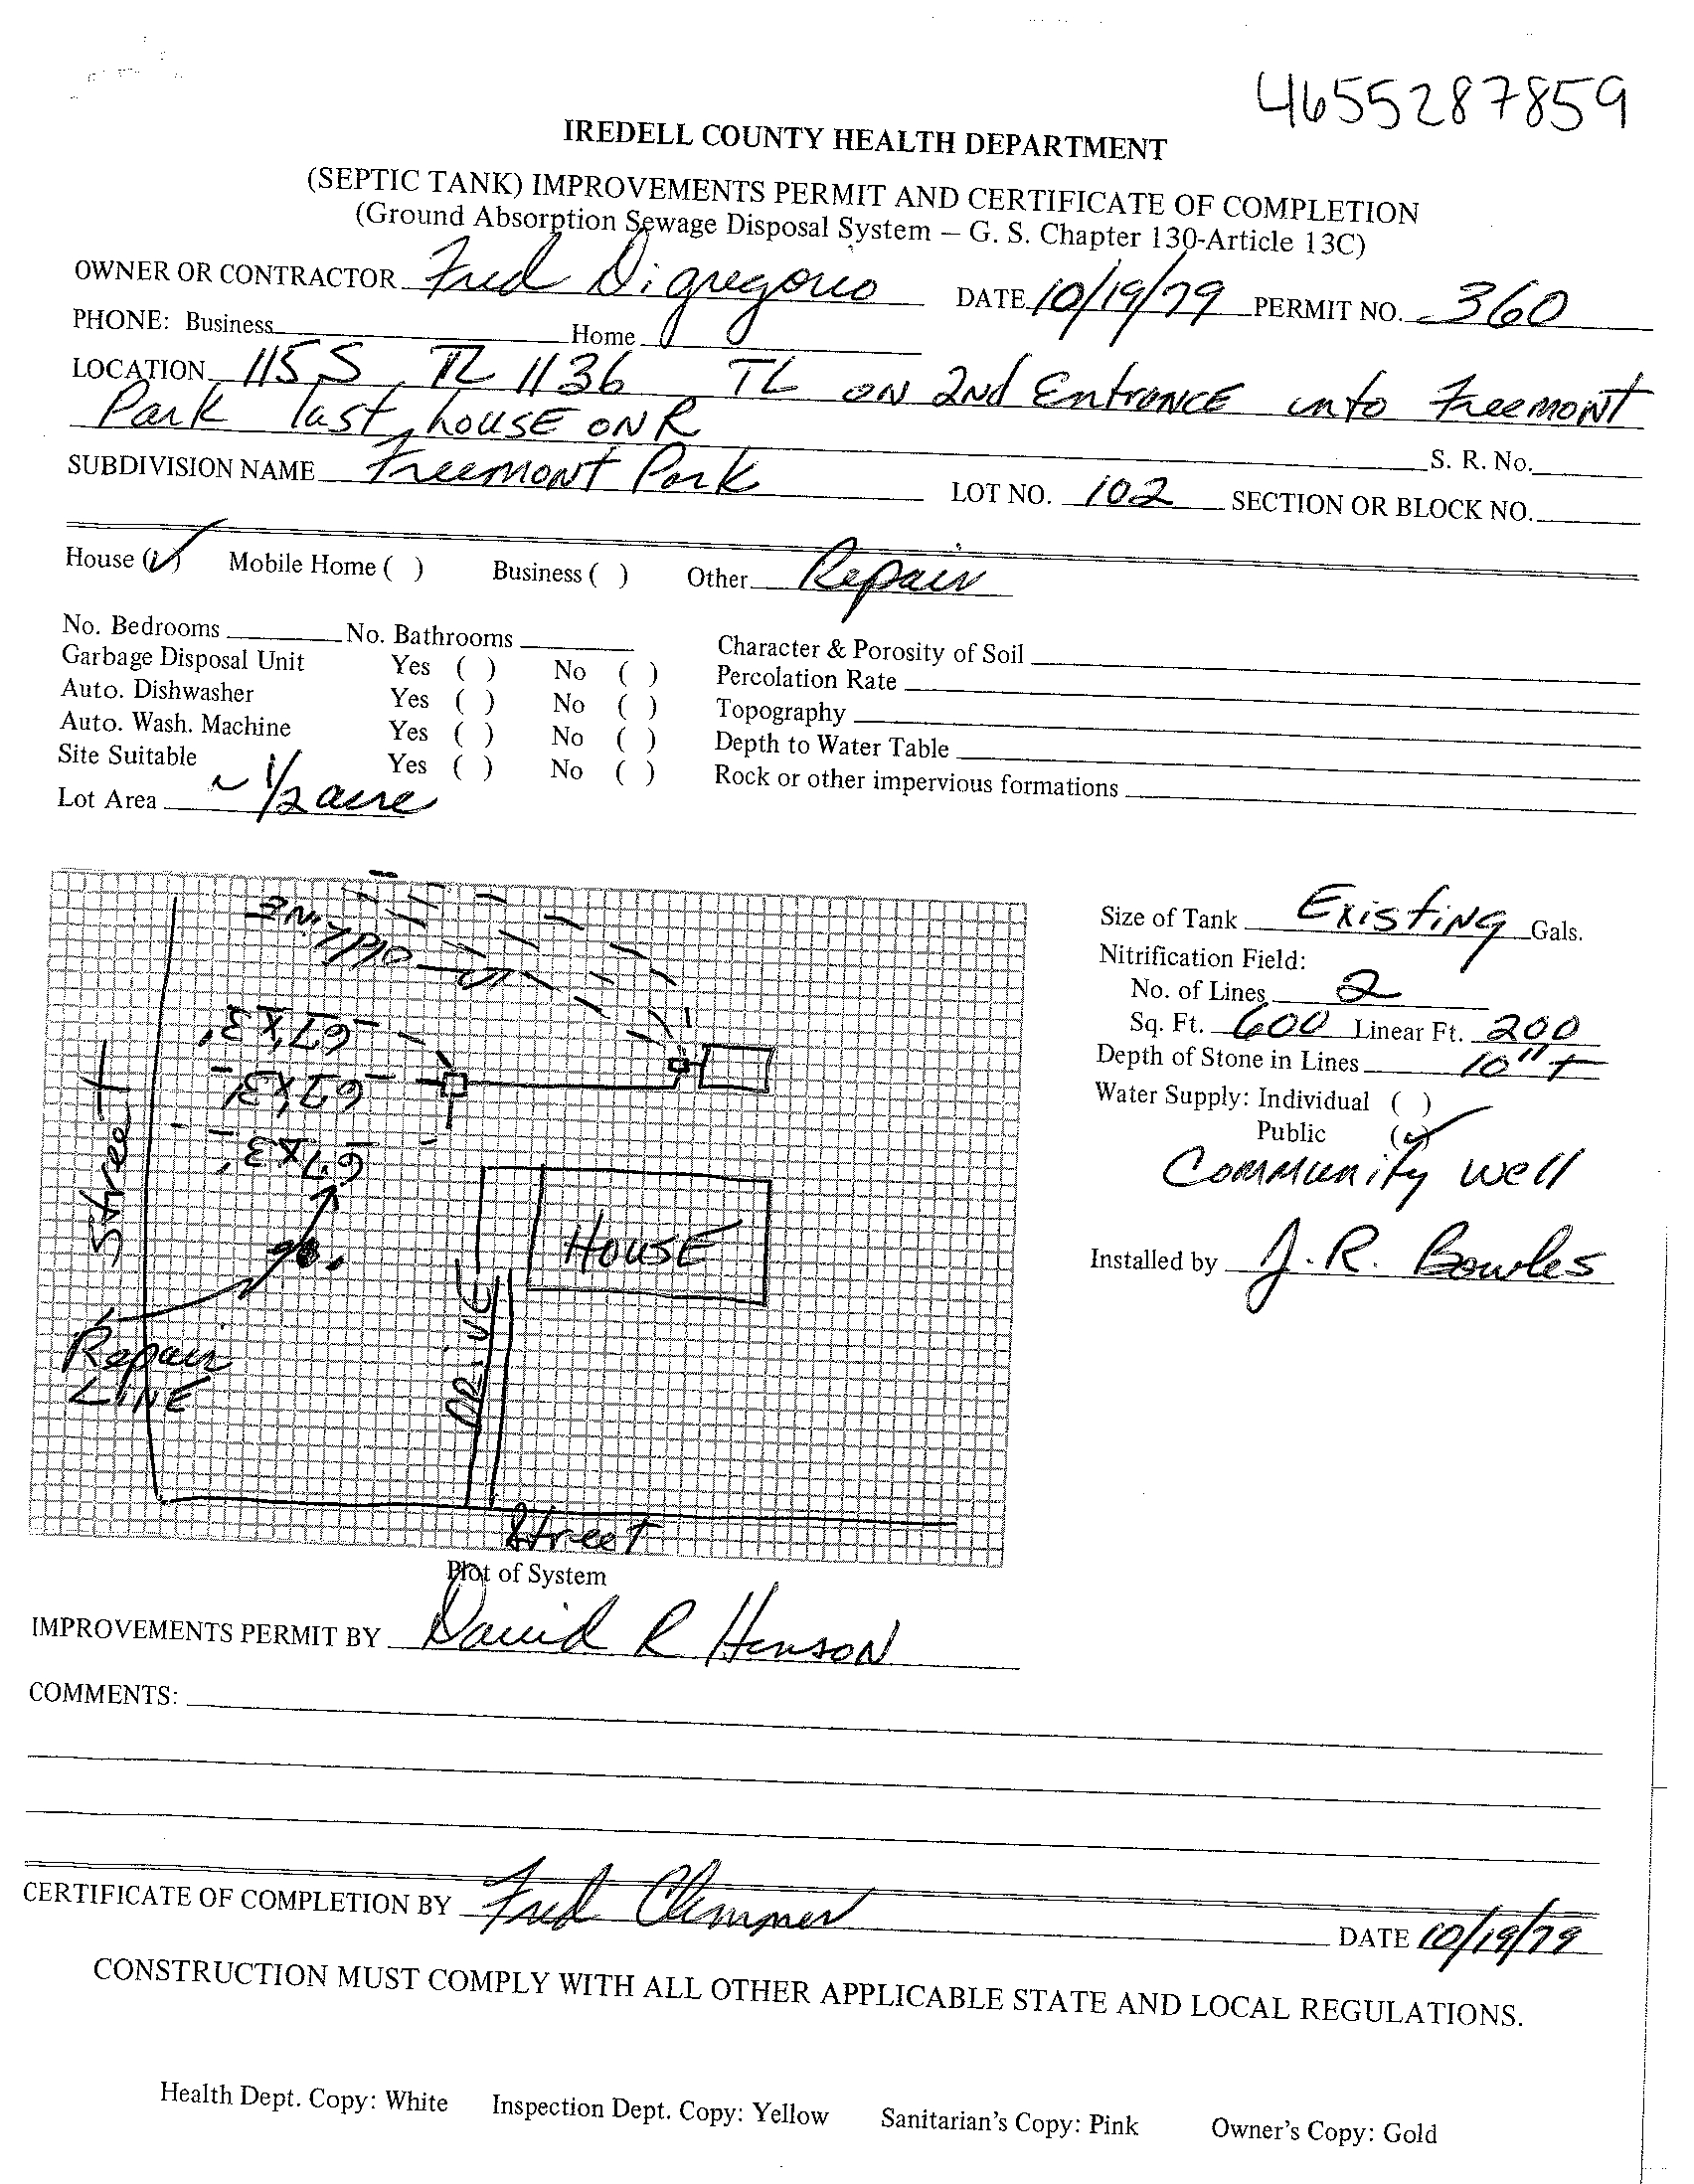 4655287859
IREDELL COUNTY HEALTH DEPARTMENT
(SEPTIC TANK) IMPROVEMENTS PERMIT AND CERTIFICATE OF COMPLETION
(Ground Absorption Sewage Disposal System – G. S. Chapter 130-Article 13C)
OWNER OR CONTRACTOR Fred Digregorio DATE 10/19/79 PERMIT NO. 360
PHONE: Business Home
LOCATION 115 S, TL 1136 TL ON 2nd Entrance into Freemont
Park last house ON R
S. R. No.
SUBDIVISION NAME Freemont Park LOT NO. 102 SECTION OR BLOCK NO.
House (✓) Mobile Home ( ) Business ( ) Other Repair
No. Bedrooms No. Bathrooms Character & Porosity of Soil
Garbage Disposal Unit Yes ( ) No ( ) Percolation Rate
Auto. Dishwasher Yes ( ) No ( ) Topography
Auto. Wash. Machine Yes ( ) No ( ) Depth to Water Table
Site Suitable Yes ( ) No ( ) Rock or other impervious formations
Lot Area ~ 1/2 acre
Old Line
67'x3'
67'x3'
67'x3'
Street
HOUSE
DRIVE
Repair
LINE
Street
Plot of System
Size of Tank Existing Gals.
Nitrification Field:
No. of Lines 2
Sq. Ft. 600 Linear Ft. 200
Depth of Stone in Lines 10"+
Water Supply: Individual ( )
Public (✓)
Community well
Installed by J. R. Bowles
IMPROVEMENTS PERMIT BY David R Henson
COMMENTS:
CERTIFICATE OF COMPLETION BY Fred Clemmer
DATE 10/19/79
CONSTRUCTION MUST COMPLY WITH ALL OTHER APPLICABLE STATE AND LOCAL REGULATIONS.
Health Dept. Copy: White Inspection Dept. Copy: Yellow Sanitarian's Copy: Pink Owner's Copy: Gold